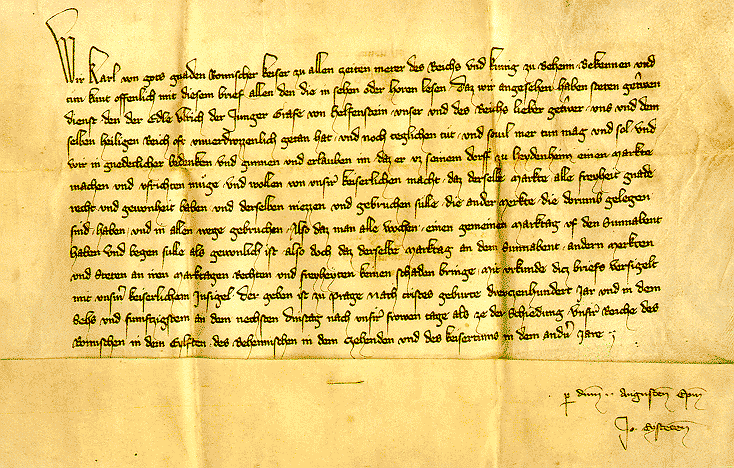 Wir Karl von gots gnaden Romischer keiser zu allen zeiten merer des Reichs vnd kunig zu Beheim Bekennen vnd
tun kunt offenlich mit diesem brief allen den die in sehen oder horen lesen Daz wir angesehen haben steten getrwen
dienst den der Edle Vlrich der Junger Grafe von helfenstein vnser vnd des Reichs lieber getrwer vns vnd dem
selben heiligen Reich oft vnuerdrozzenlich getan hat vnd noch teglichen tut vnd seoul mer tun mag vnd sol vnd
wir in gnedeclicher bedenken vnd gunnen vnd erlauben im daz er vz seinem dorff zu heydenheim einen markte
machen vnd vfrichten muge vnd wollen von vnsir keiserlichen macht daz derselbe markte alle freyheit gnade
recht vnd gewonheit haben vnd derselben niezzen vnd gebruchen sulle die ander merkte die dorumb gelegen
sind haben vnd in allen wege gebruchen Also daz man alle wochen einen gemeinen marktag vf den Sunnabent
haben vnd begen sulle als gewonlich ist also doch daz derselbe marktag an dem Sunnabent andern merkten
vnd Steten an iren marktagen Rechten vnd freyheyten keinen schaden bringe mit vrkunde ditz briefs versigelt
mit vnsirm keiserlichem Insigel Der geben ist zu Prage nach cristes geburte dreutzenhundert Jar vnd in dem
Sehs vnd funftzigstem an dem nechsten dinstag nach vnsir frowen tage als ze der Schiedung vnsir Reiche des
Romischen in dem Eylften des Behemischen in dem Czehenden vnd des keisertums in dem andirn Jare
p dnm Augusten Epm
Jo Eysteten